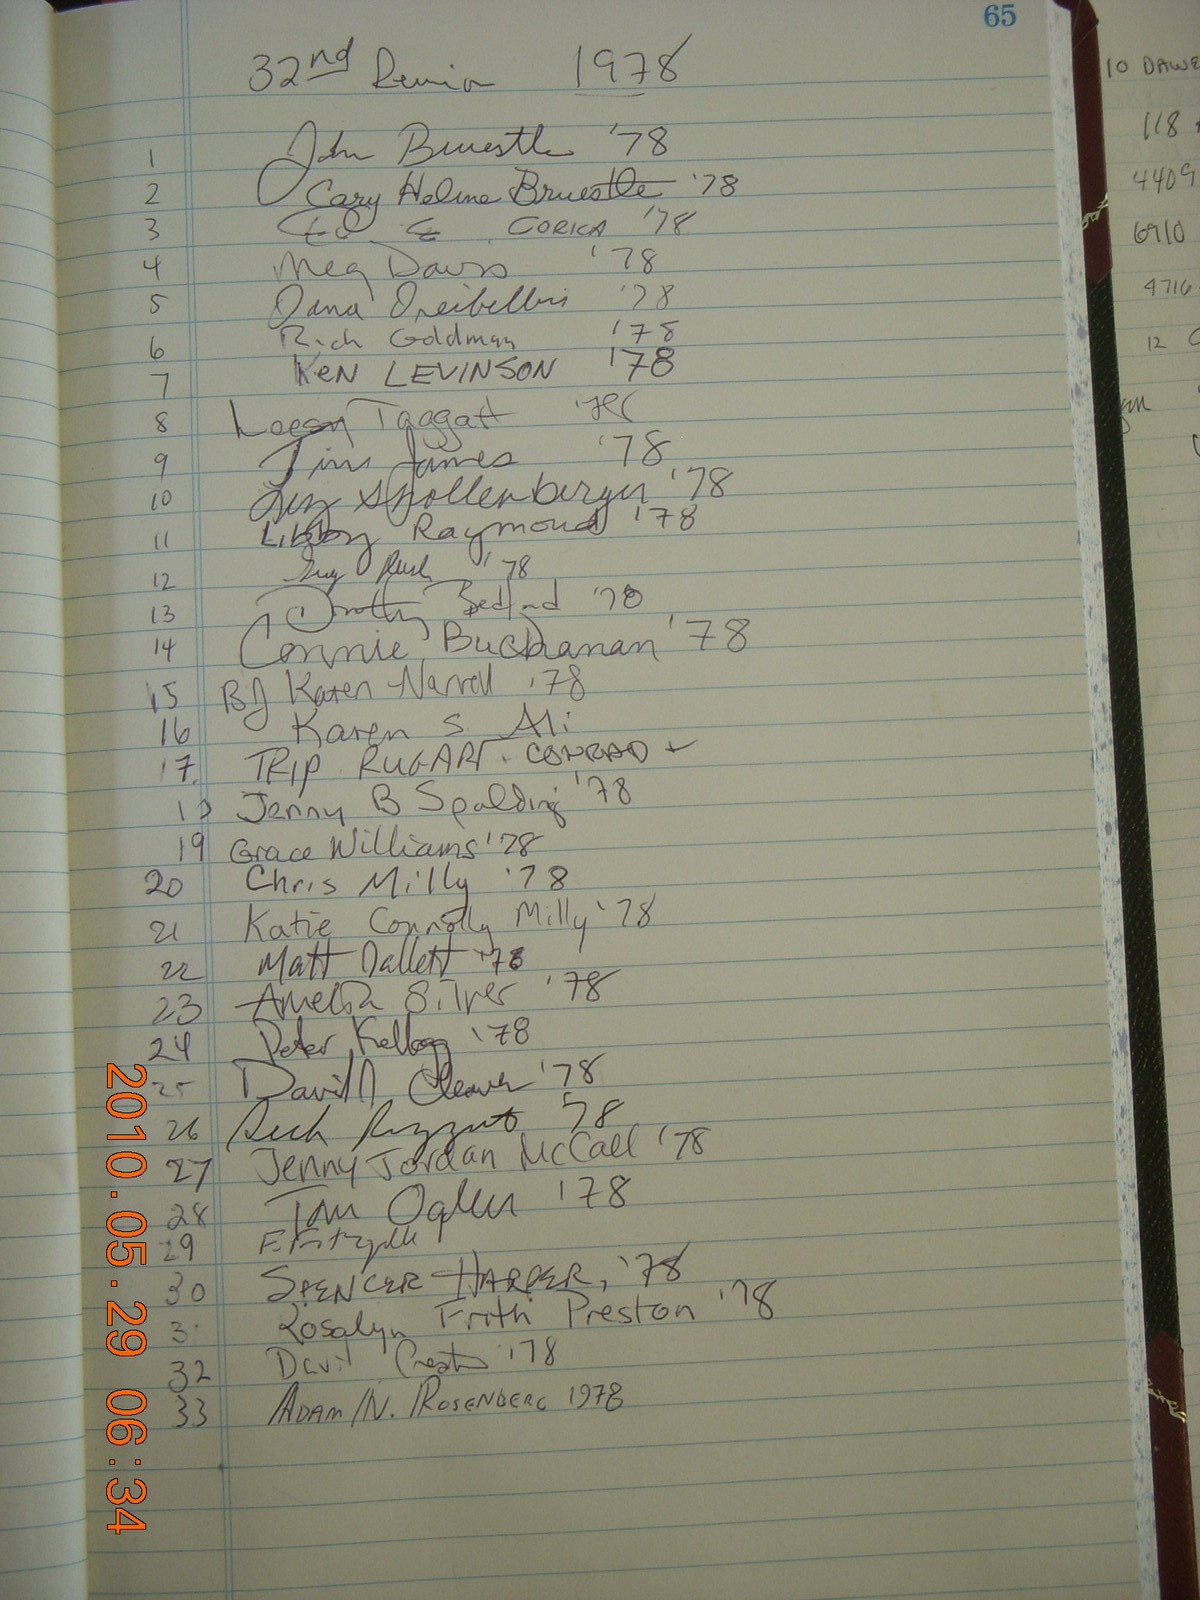 65
32nd Reunion 1978
1 John Bruestle '78
2 Cary Helme Bruestle '78
3 Ed CORICA '78
4 Meg Davis '78
5 Dana Dreibelbis '78
6 Rich Goldman '78
7 KEN LEVINSON '78
8 Taggart '78
9 Tim James '78
10 Shollenberger '78
11 Libby Raymond '78
12 Guy Rush '78
13 Dorothy Bedford '78
14 Connie Buchanan '78
15 BJ Karen Narvell '78
16 Karen S. Ali
17. TRIP CONRAD
18 Jenny B Spalding '78
19 Grace Williams '78
20 Chris Milly '78
21 Katie Connolly Milly '78
22 Matt Dallett '78
23 Amelia Silver '78
24 Peter Kellogg '78
25 David Cleaver '78
26 Rick '78
27 Jenny Jordan McCall '78
28 Tom '78
29
30 SPENCER HARPER, '78
31 Rosalyn Frith Preston '78
32 David '78
33 ADAM N. ROSENBERG 1978
10 DAWE
118
4409
6910
4716
12
2010.05.29 06:34